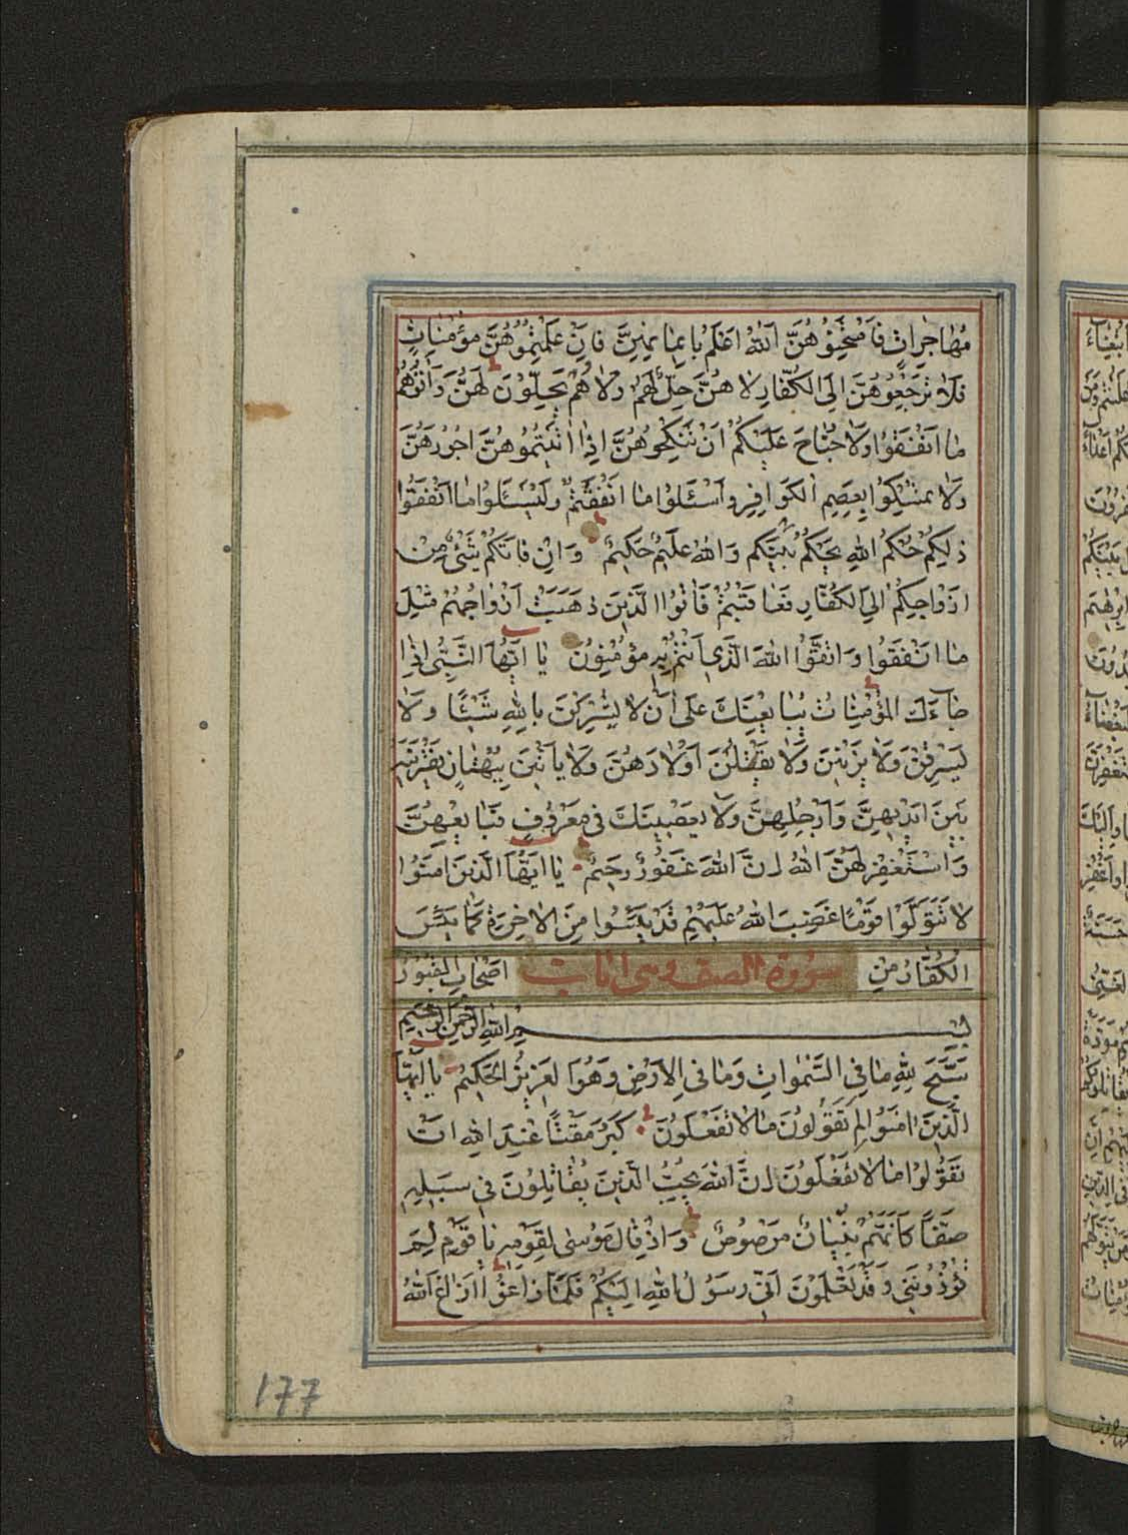 مُهَاجِرَاتٍ فَامْتَحِنُوهُنَّ اَللّٰهُ اَعْلَمُ بِاِيمَانِهِنَّ فَاِنْ عَلِمْتُمُوهُنَّ مُؤْمِنَاتٍ
فَلَا تَرْجِعُوهُنَّ اِلَى الْكُفَّارِ لَا هُنَّ حِلٌّ لَهُمْ وَلَا هُمْ يَحِلُّونَ لَهُنَّ وَاٰتُوهُمْ
مَا اَنْفَقُوا وَلَا جُنَاحَ عَلَيْكُمْ اَنْ تَنْكِحُوهُنَّ اِذَا اٰتَيْتُمُوهُنَّ اُجُورَهُنَّ
وَلَا تُمْسِكُوا بِعِصَمِ الْكَوَافِرِ وَاسْئَلُوا مَا اَنْفَقْتُمْ وَلْيَسْئَلُوا مَا اَنْفَقُوا
ذٰلِكُمْ حُكْمُ اللّٰهِ يَحْكُمُ بَيْنَكُمْ وَاللّٰهُ عَلِيمٌ حَكِيمٌ وَاِنْ فَاتَكُمْ شَىْءٌ مِنْ
اَزْوَاجِكُمْ اِلَى الْكُفَّارِ فَعَاقَبْتُمْ فَاٰتُوا الَّذِينَ ذَهَبَتْ اَزْوَاجُهُمْ مِثْلَ
مَا اَنْفَقُوا وَاتَّقُوا اللّٰهَ الَّذِى اَنْتُمْ بِهِ مُؤْمِنُونَ يَا اَيُّهَا النَّبِىُّ اِذَا
جَاءَكَ الْمُؤْمِنَاتُ يُبَايِعْنَكَ عَلٰى اَنْ لَا يُشْرِكْنَ بِاللّٰهِ شَيْئًا وَلَا
يَسْرِقْنَ وَلَا يَزْنِينَ وَلَا يَقْتُلْنَ اَوْلَادَهُنَّ وَلَا يَأْتِينَ بِبُهْتَانٍ يَفْتَرِينَهُ
بَيْنَ اَيْدِيهِنَّ وَاَرْجُلِهِنَّ وَلَا يَعْصِينَكَ فِى مَعْرُوفٍ فَبَايِعْهُنَّ
وَاسْتَغْفِرْ لَهُنَّ اللّٰهَ اِنَّ اللّٰهَ غَفُورٌ رَحِيمٌ يَا اَيُّهَا الَّذِينَ اٰمَنُوا
لَا تَتَوَلَّوْا قَوْمًا غَضِبَ اللّٰهُ عَلَيْهِمْ قَدْ يَئِسُوا مِنَ الْاٰخِرَةِ كَمَا يَئِسَ
الْكُفَّارُ مِنْ اَصْحَابِ الْقُبُورِ
سورة الصف
بِسْمِ اللّٰهِ الرَّحْمٰنِ الرَّحِيمِ
سَبَّحَ لِلّٰهِ مَا فِى السَّمٰوَاتِ وَمَا فِى الْاَرْضِ وَهُوَ الْعَزِيزُ الْحَكِيمُ يَا اَيُّهَا
الَّذِينَ اٰمَنُوا لِمَ تَقُولُونَ مَا لَا تَفْعَلُونَ كَبُرَ مَقْتًا عِنْدَ اللّٰهِ اَنْ
تَقُولُوا مَا لَا تَفْعَلُونَ اِنَّ اللّٰهَ يُحِبُّ الَّذِينَ يُقَاتِلُونَ فِى سَبِيلِهِ
صَفًّا كَاَنَّهُمْ بُنْيَانٌ مَرْصُوصٌ وَاِذْ قَالَ مُوسٰى لِقَوْمِهِ يَا قَوْمِ لِمَ
تُؤْذُونَنِى وَقَدْ تَعْلَمُونَ اَنِّى رَسُولُ اللّٰهِ اِلَيْكُمْ فَلَمَّا زَاغُوا اَزَاغَ اللّٰهُ
177